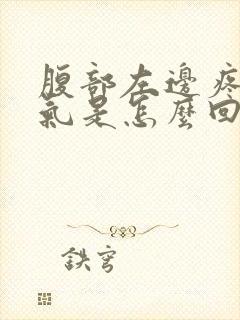 腹部左邊疼
氣是怎麼回
鉄穹